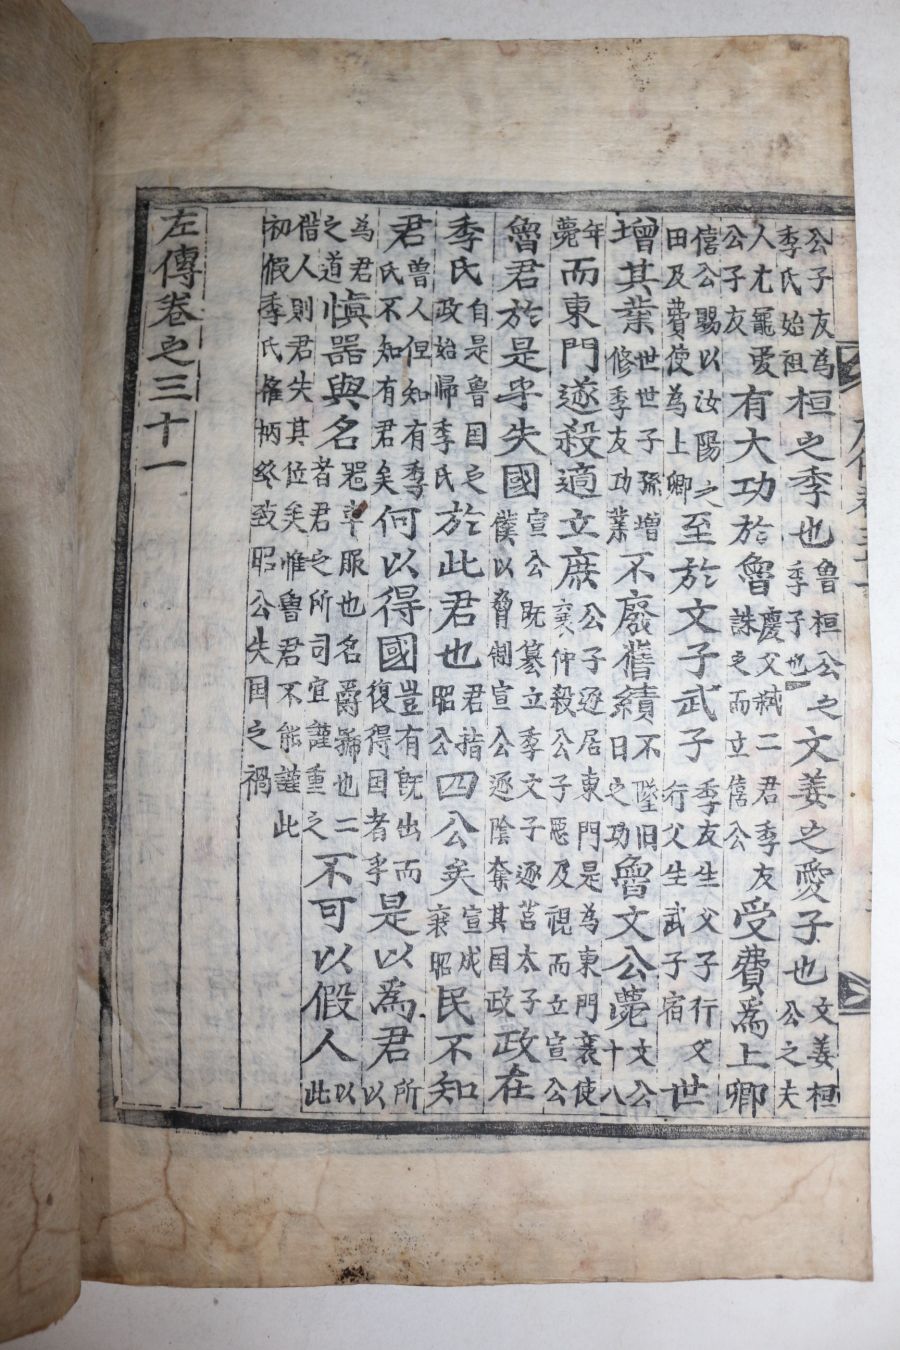 公子友為季氏始祖桓之季也魯桓公之季子也文姜之愛子也文姜桓公之夫
人尤寵愛公子友有大功於魯慶父弑二君季友誅之而立僖公受費爲上卿
僖公賜以汝陽之田及費使為上卿至於文子武子季友生父子行父行父生武子宿世
增其業世世子孫增修季友功業不廢舊績不墜旧日之功魯文公薨文公十八
年薨而東門遂殺適立庶公子遂居東門是為東門襄使襄仲殺公子惡及視而立宣公
魯君於是乎失國宣公既簒立季文子逐莒太子僕以脅制宣公遂陰奪其国政政在
季氏自是魯国之政始帰季氏於此君也君指昭公四公矣宣成襄昭民不知
君曽人但知有季氏不知有君矣何以得國豈有既出而復得国者乎是以爲君所以
為君之道愼器與名器車服也名爵號也二者君之所司宜謹重之不可以假人以此
借人則君失其位矣惟魯君不能謹此初假季氏権柄終致昭公失国之禍
左傳卷之三十一